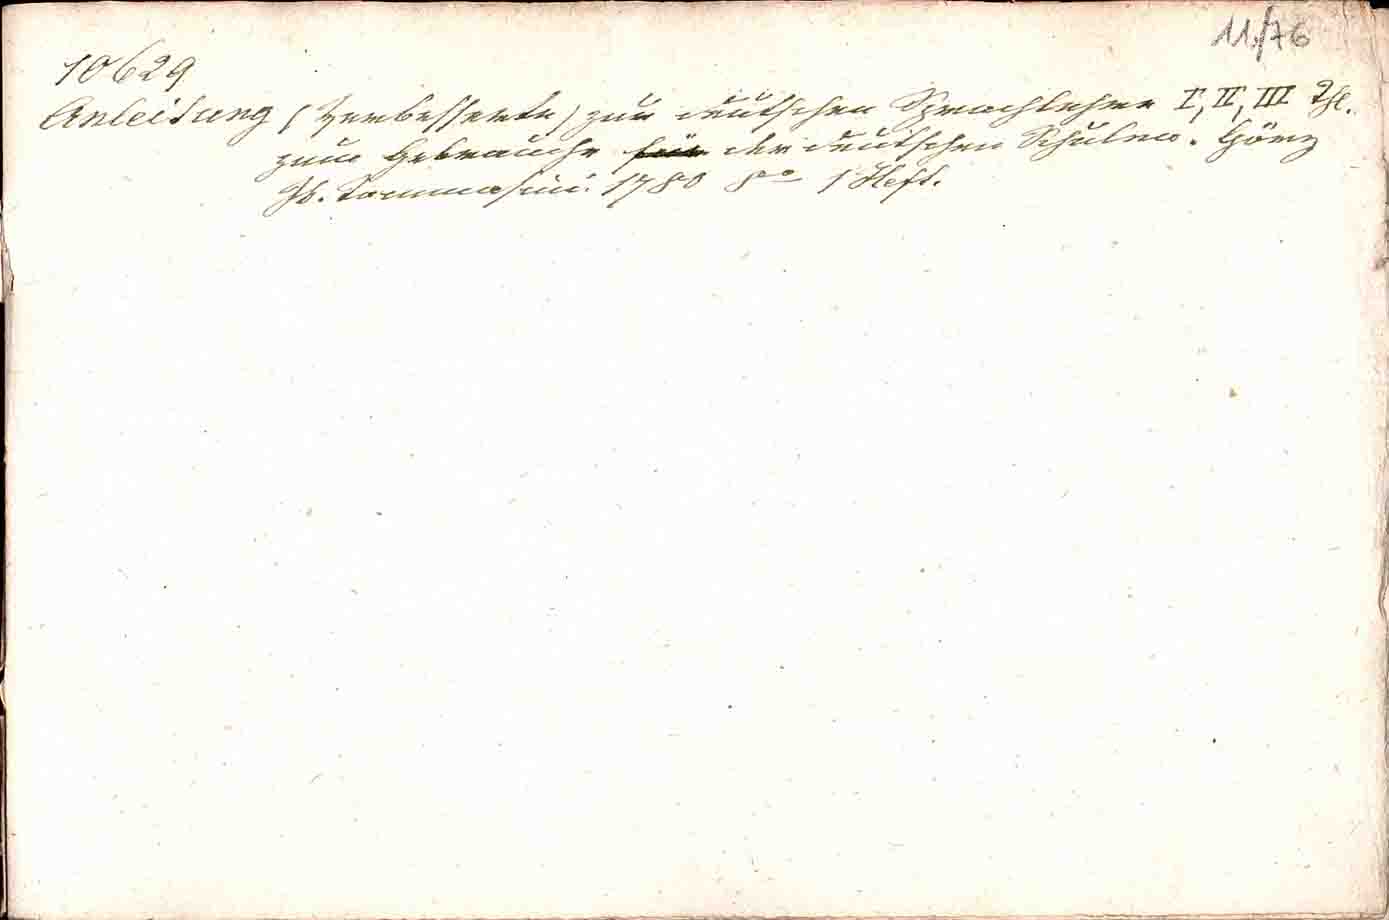 11/76
10629
Anleitung (Verbesserte) zur deutschen Sprachlehre I, II, III Thl.
zum Gebrauche für der deutschen Schulen. Görz
Jb. Tommasini. 1780 8o 1 Heft.